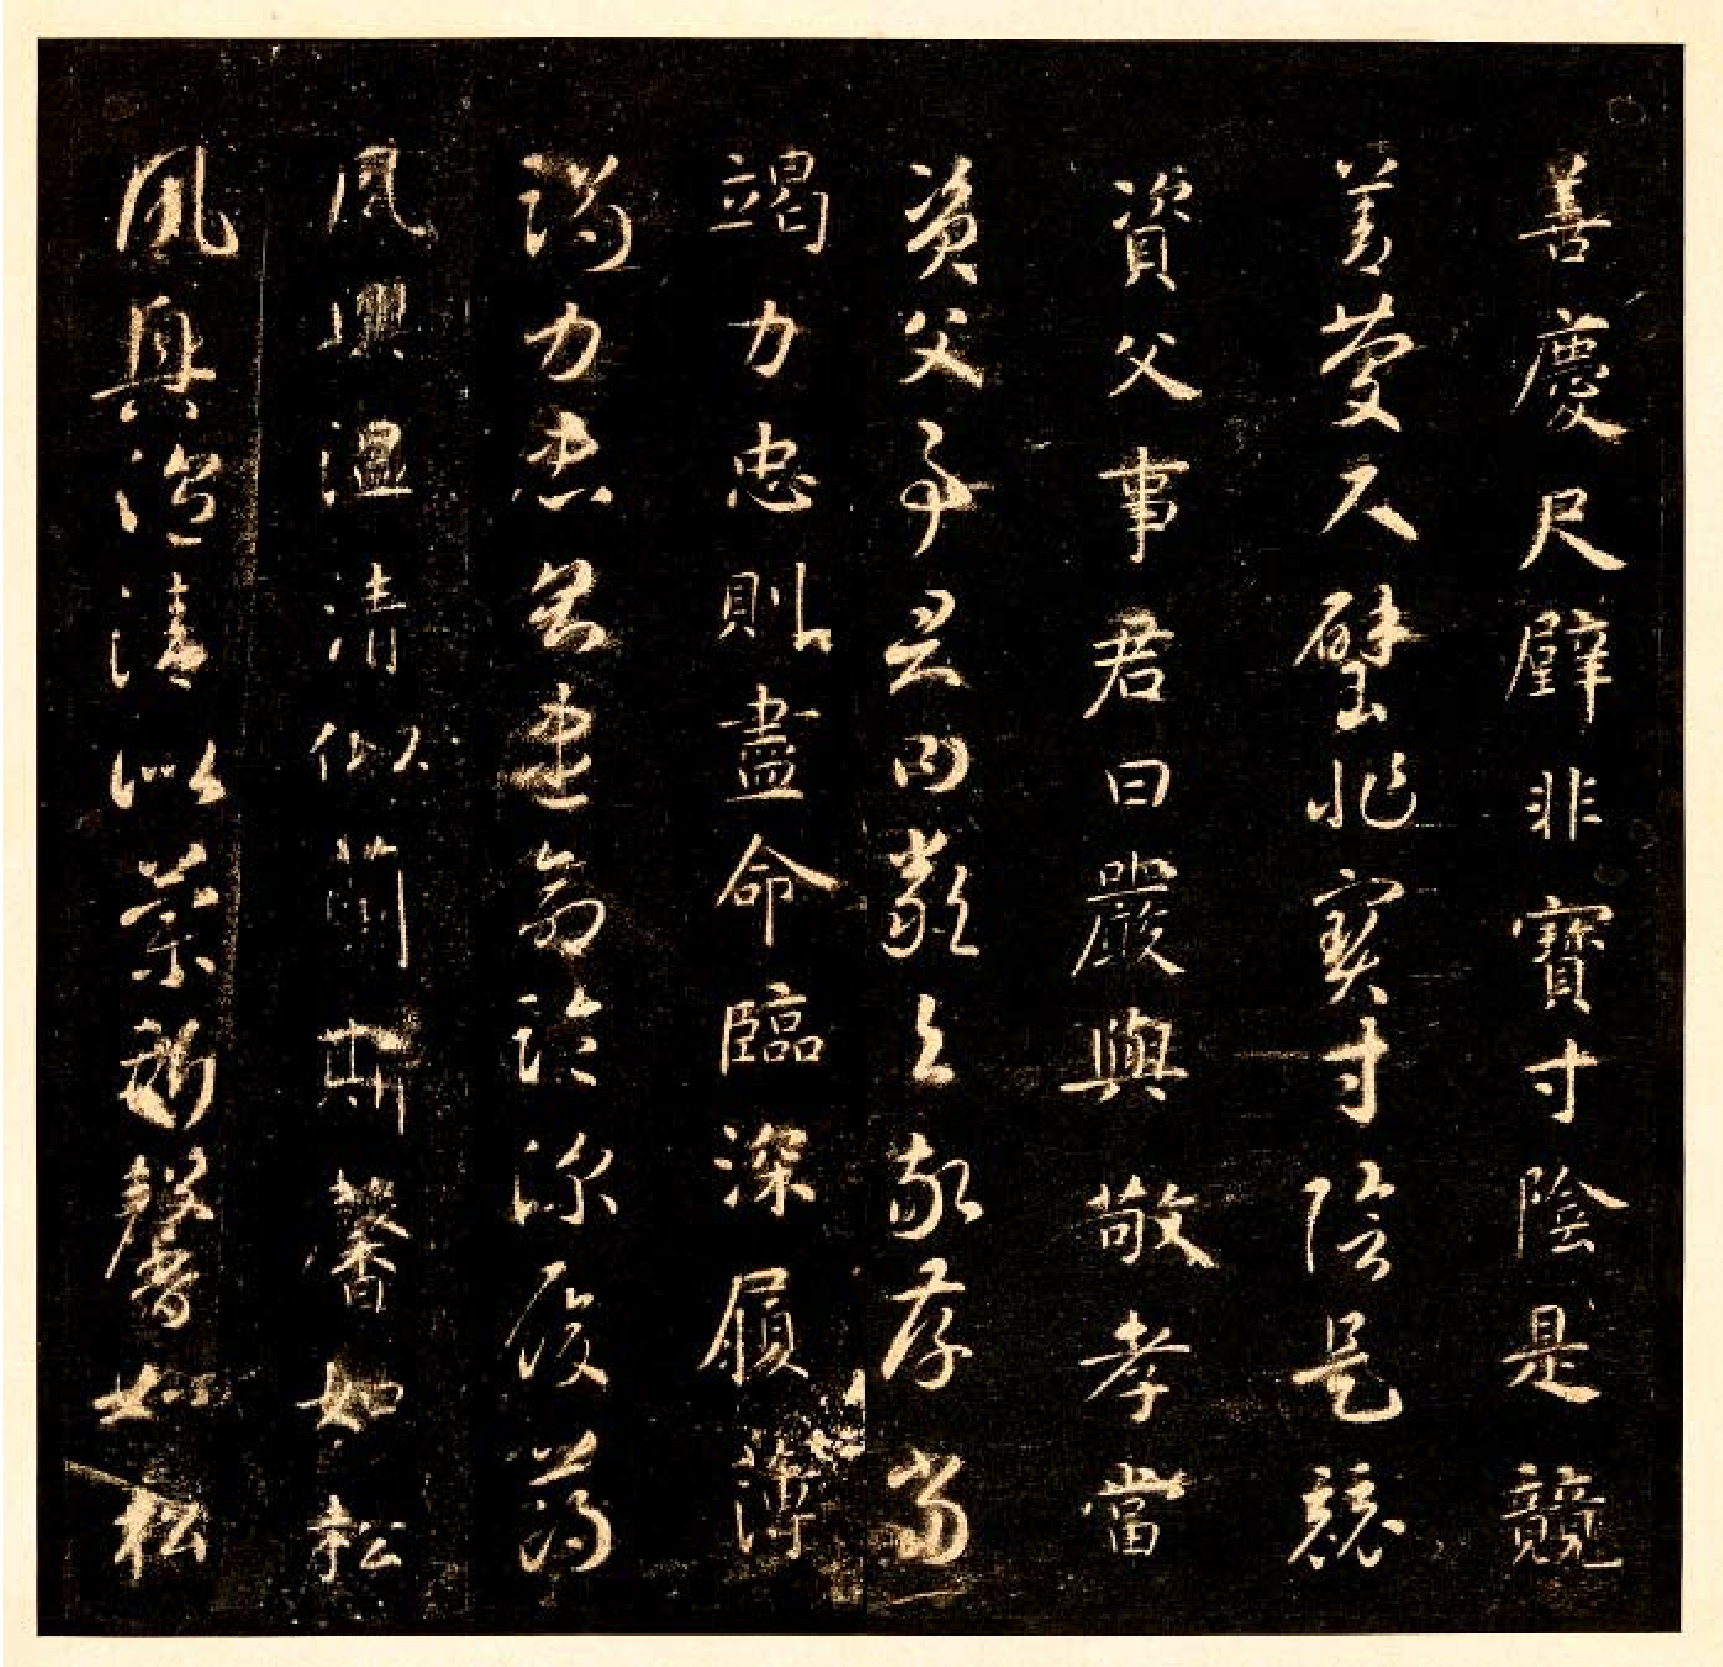 善慶尺璧非寶寸陰是競
善慶尺璧非寶寸陰是競
資父事君曰嚴與敬孝當
資父事君曰嚴與敬孝當
竭力忠則盡命臨深履薄
竭力忠則盡命臨深履薄
夙興溫清似蘭斯馨如松
夙興溫清似蘭斯馨如松